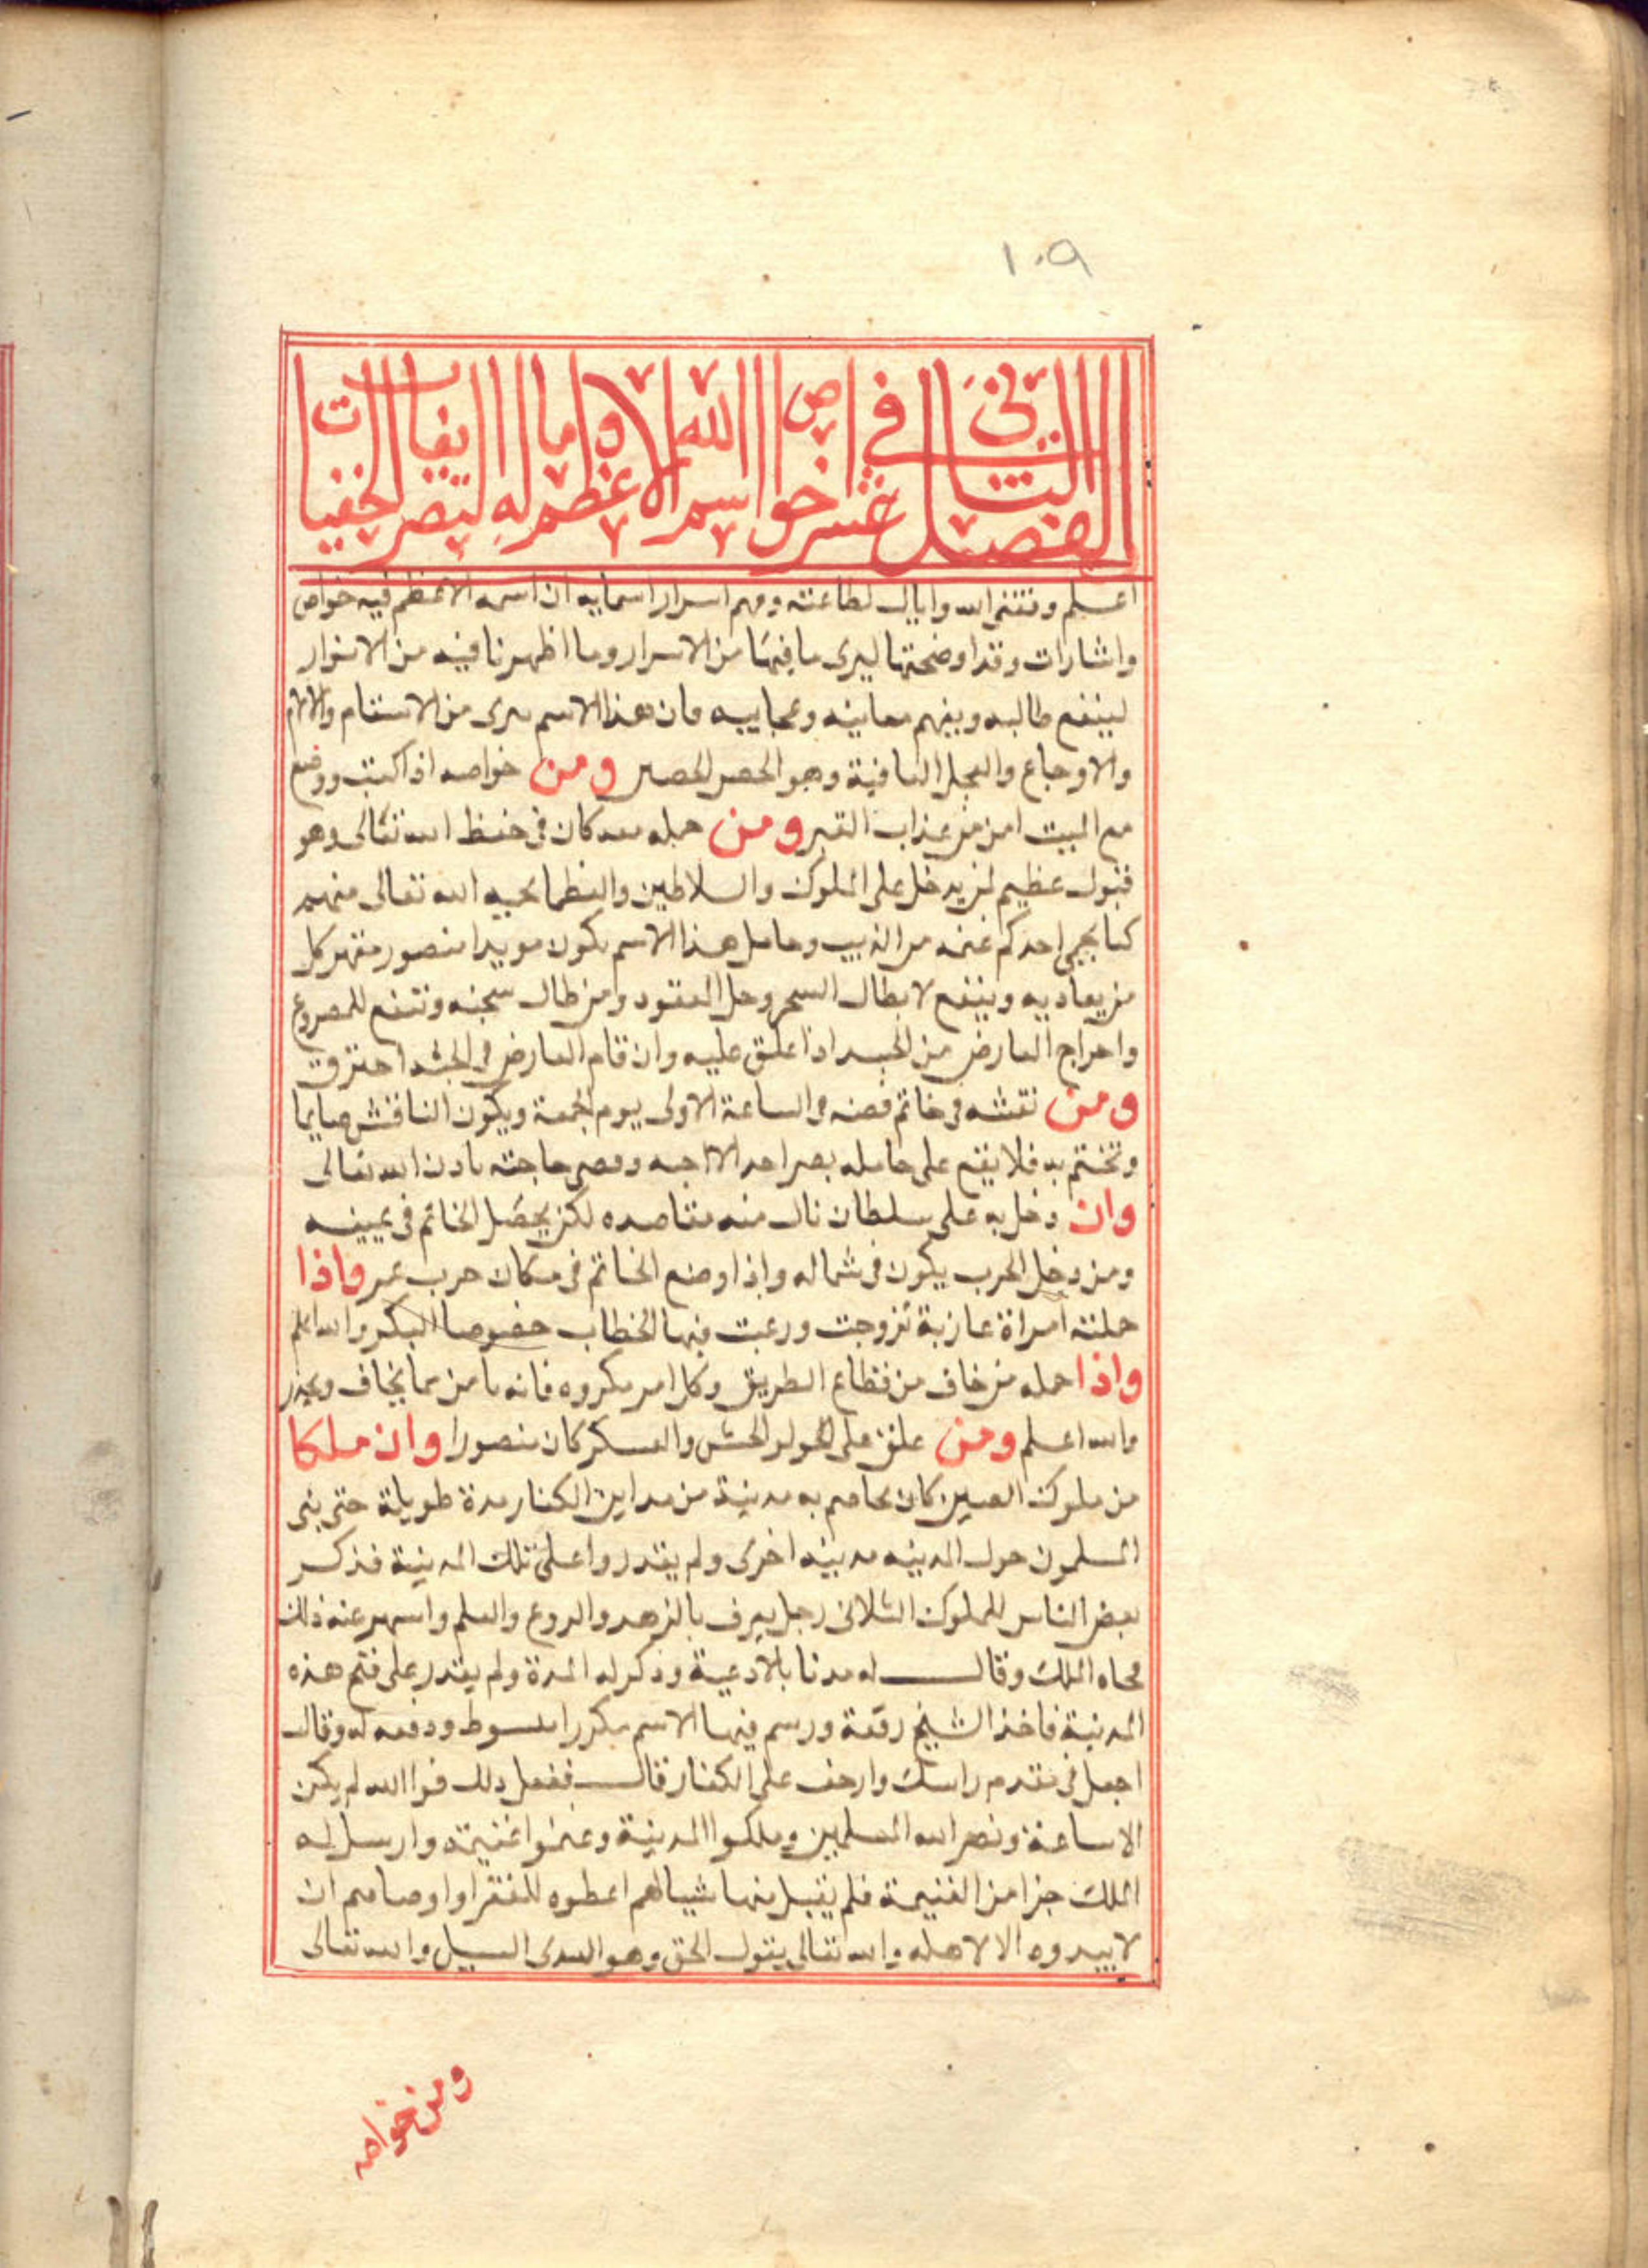 ١٠٩
الفصل الثاني عشر في خواص اسم الله الاعظم وما له التصريفات الخفيات
اعلم وفقني الله واياك لطاعته وفهم اسرار اسمايه ان اسمه الاعظم فيه خواص
واشارات وقد اوضحتها ليرى ما فيها من الاسرار وما اظهرنا فيه من الانوار
لينتفع طالبه ويفهم معانيه وعجايبه فان هذا الاسم يبرى من الاسقام والالام
والاوجاع وهو الحصن الحصين ومن خواصه اذا كتب ووضع
مع الميت امن من عذاب القبر ومن حمله معه كان في حفظ الله تعالى وهو
قبول عظيم لمن يدخل على الملوك والسلاطين والعظما يحميه الله تعالى منهم
كما يحمي احدكم غنمه من الذيب وحامل هذا الاسم يكون مويدا منصور مقهر كل
من يعاديه وينفع لابطال السحر وحل المعقود ومن طال سجنه وتنفع للمصروع
واخراج العارض من الجسد اذا علق عليه وان قام العارض في الجسد احترق
ومن نقشه في خاتم فضه في الساعة الاولى يوم الجمعة ويكون الناقش صايما
وتختم به فلا يقع على حامله بصر احد الا احبه وقضى حاجته باذن الله تعالى
وان دخل به على سلطان نال منه مقاصده لكن يحصل الخاتم في يمينه
ومن دخل الحرب يكون في شماله واذا وضع الخاتم في مكان خرب عمر واذا
حملته امراة عازبة تزوجت ورغبت فيها الخطاب خصوصا البكر والله اعلم
واذا حمله من خاف من قطاع الطريق وكل امر مكروه فانه يامن مما يخاف ويحذر
والله اعلم ومن علق على الجيش والعسكر كان منصورا وان ملكا
من ملوك الصين كان يحاصر به مدينة من مداين الكفار مدة طويلة حتى بنى
المسلمون حول المدينه مدينه اخرى ولم يقدروا على تلك المدينة فذكر
بعض الناس للملوك رجل يعرف بالزهد والورع والعلم واشهر عنه ذلك
فجاه الملك وقال له مدنا بالادعية وذكر له المدة ولم يقدر على فتح هذه
المدينة فاخذ الشيخ رقعة ورسم فيها الاسم مكررا مبسوط ودفعه له وقال
اجعل في مقدم راسك وارحف على الكفار قال ففعل ذلك فوا الله لم يكن
الا ساعة ونصر الله المسلمين وملكوا المدينة وغنموا غنيمة وارسل له
الملك جزا من الغنيمة فلم يقبل منها شيا اعطوه للفقرا واوصاهم ان
لا يبدوه الا لاهله والله تعالى يقول الحق وهو يهدى السبيل والله تعالى
ومن خواصه